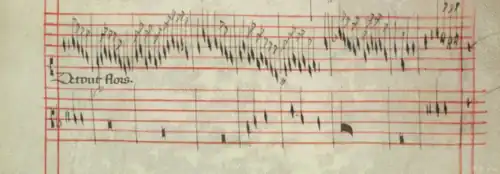 De tout flors.